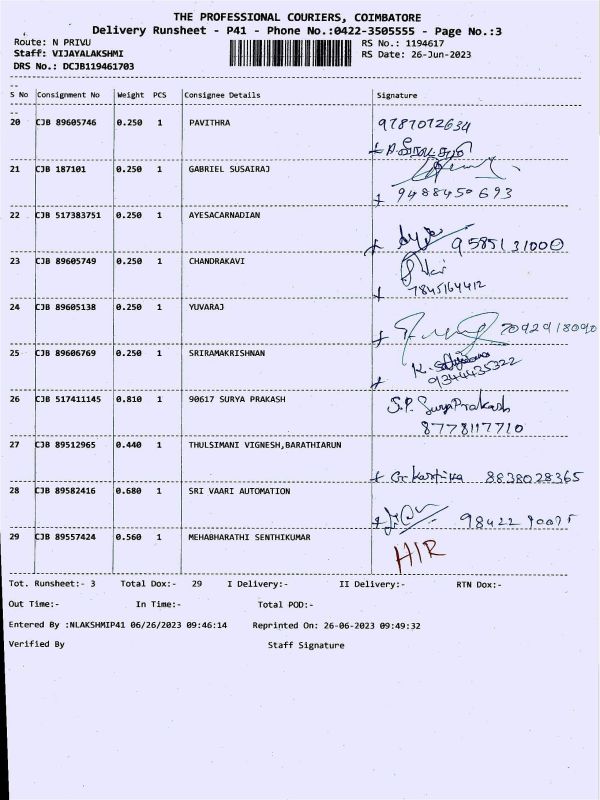 THE PROFESSIONAL COURIERS, COIMBATORE
Delivery Runsheet - P41 - Phone No.:0422-3505555 - Page No.:3
Route: N PRIVU RS No.: 1194617
Staff: VIJAYALAKSHMI RS Date: 26-Jun-2023
DRS No.: DCJB119461703
S No Consignment No Weight PCS Consignee Details Signature
20 CJB 89605746 0.250 1 PAVITHRA 9787072634
21 CJB 187101 0.250 1 GABRIEL SUSAIRAJ
9488450693
22 CJB 517383751 0.250 1 AYESACARNADIAN
9585131000
23 CJB 89605749 0.250 1 CHANDRAKAVI
7845164412
24 CJB 89605138 0.250 1 YUVARAJ
7092918090
25 CJB 89606769 0.250 1 SRIRAMAKRISHNAN
9344435322
26 CJB 517411145 0.810 1 90617 SURYA PRAKASH S.P. SuryaPrakash
8778117710
27 CJB 89512965 0.440 1 THULSIMANI VIGNESH,BARATHIARUN
G. Kartika 8838028365
28 CJB 89582416 0.680 1 SRI VAARI AUTOMATION
29 CJB 89557424 0.560 1 MEHABHARATHI SENTHIKUMAR
HIR
Tot. Runsheet:- 3 Total Dox:- 29 I Delivery:- II Delivery:- RTN Dox:-
Out Time:- In Time:- Total POD:-
Entered By :NLAKSHMIP41 06/26/2023 09:46:14 Reprinted On: 26-06-2023 09:49:32
Verified By Staff Signature